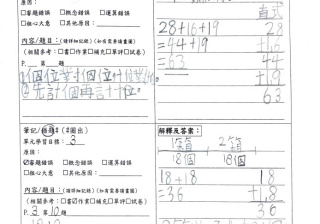 原因：
□審題錯誤 □概念錯誤 □運算錯誤
□粗心大意 □其他原因：
內容/題目：(請詳細記錄)(如有需要請畫圖)
(相關參考：□書□作□補充□草評□試卷)
P. 第 題
②先計個再言十位。
直式
28+16+19
=44+19
=63
28
+16
44
+19
63
筆記/錯題#(#圈出)
單元學習目標：3
原因：
☑審題錯誤 □概念錯誤 □運算錯誤
□粗心大意 □其他原因：
內容/題目：(請詳細記錄)(如有需要請畫圖)
(相關參考：□書☑作□補充□草評□試卷)
P. 3 第 10 題
解釋及答案：
1箱 2箱
18個 18個
18+18
=36
18
+18
36